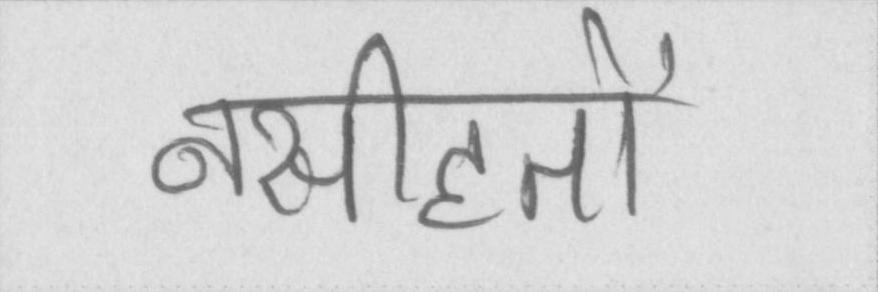 नसीहतों